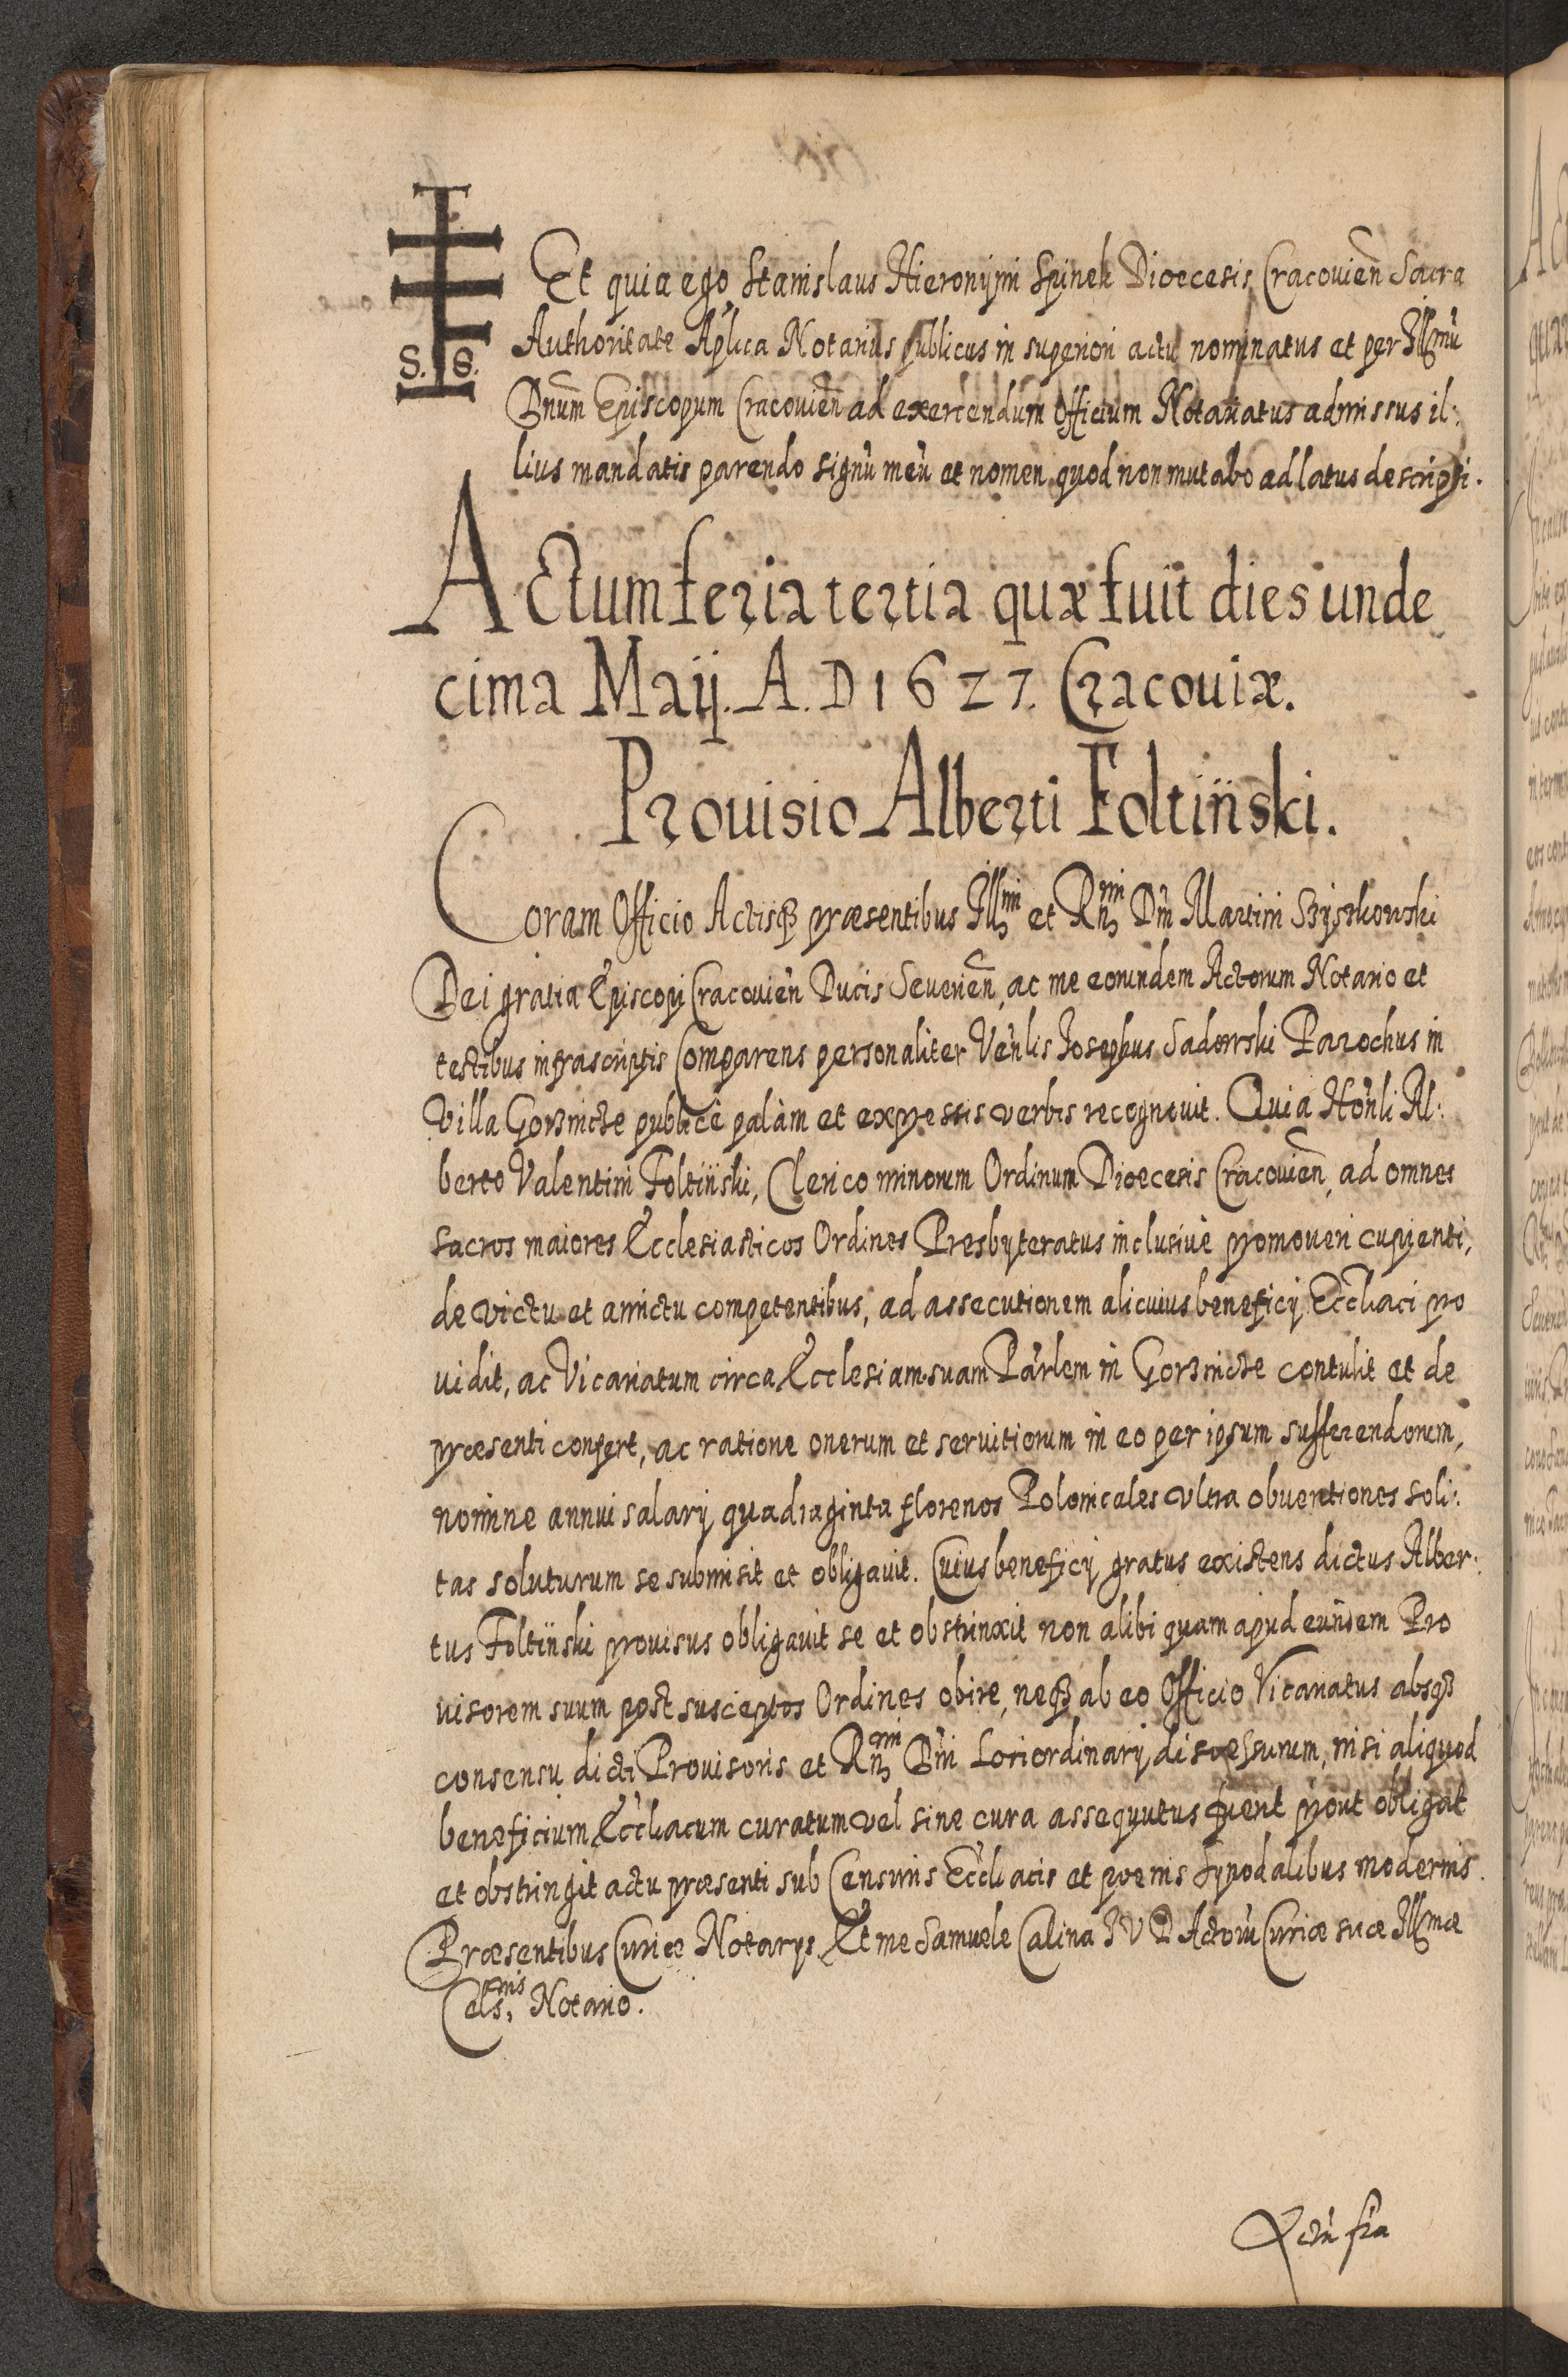 S. S.
Et quia ego Stanislaus Hieronymi Spinek Dioecesis Cracovien̄ Sacra
Authoritate Aplica Notarius publicus in superiori actu nominatus et per Illmū
Dnum Episcopum Cracouien̄ ad exercendum Officium Notariatus admissus il:
lius mandatis parendo signū meū et nomen quod non mutabo ad latus descripsi.
Actum feria tertia quæ fuit dies unde
cima Maij. A. D 1627. Cracouiæ.
Prouisio Alberti Foltiński.
Coram Officio Actisq3 præsentibus Illmi et Rmi Dni Martini Szyszkowski
Dei gratia Episcopi Cracouien̄ Ducis Seuerien̄, ac me eorundem Actorum Notario et
testibus infrascriptis Comparens personaliter Venlis Iosephus Sadowski Parochus in
Villa Gorzincze publicè palàm et expressis verbis recognouit. Quia Honli Al:
berto Valentini Foltiński, Clerico minorum Ordinum Dioecesis Cracouien̄, ad omnes
sacros maiores Ecclesiasticos Ordines Presbyteratus inclusiuè promoueri cupienti,
de victu et amictu competentibus, ad assecutionem alicuius beneficij Eccliaci pro
uidit, ac Vicariatum circa Ecclesiam suam Parlem in Gorzincze contulit et de
præsenti confert, ac ratione onerum et seruitiorum in eo per ipsum sufferendorum,
nomine annui salarij quadraginta florenos Polonicales vltra obuentiones soli:
tas soluturum se submisit et obligauit. Cuius beneficij gratus existens dictus Alber:
tus Foltiński prouisus obligauit se et obstrinxit non alibi quam apud eundem Pro
uisorem suum post susceptos Ordines obire, neq3 ab eo Officio Vicariatus absq3
consensu dicti Prouisoris et Rmi Dni Loci ordinarij discessurum, nisi aliquod
beneficium Eccliacum curatum vel sine cura assequutus fuerit prout obligat
et obstringit actu præsenti sub Censuris Eccliacis et poenis synodalibus modernis.
Præsentibus Curiæ Notarijs. Et me Samuele Calina I V D Actorū Curiæ suæ Illmæ
Celsnis, Notario.
Actū fria